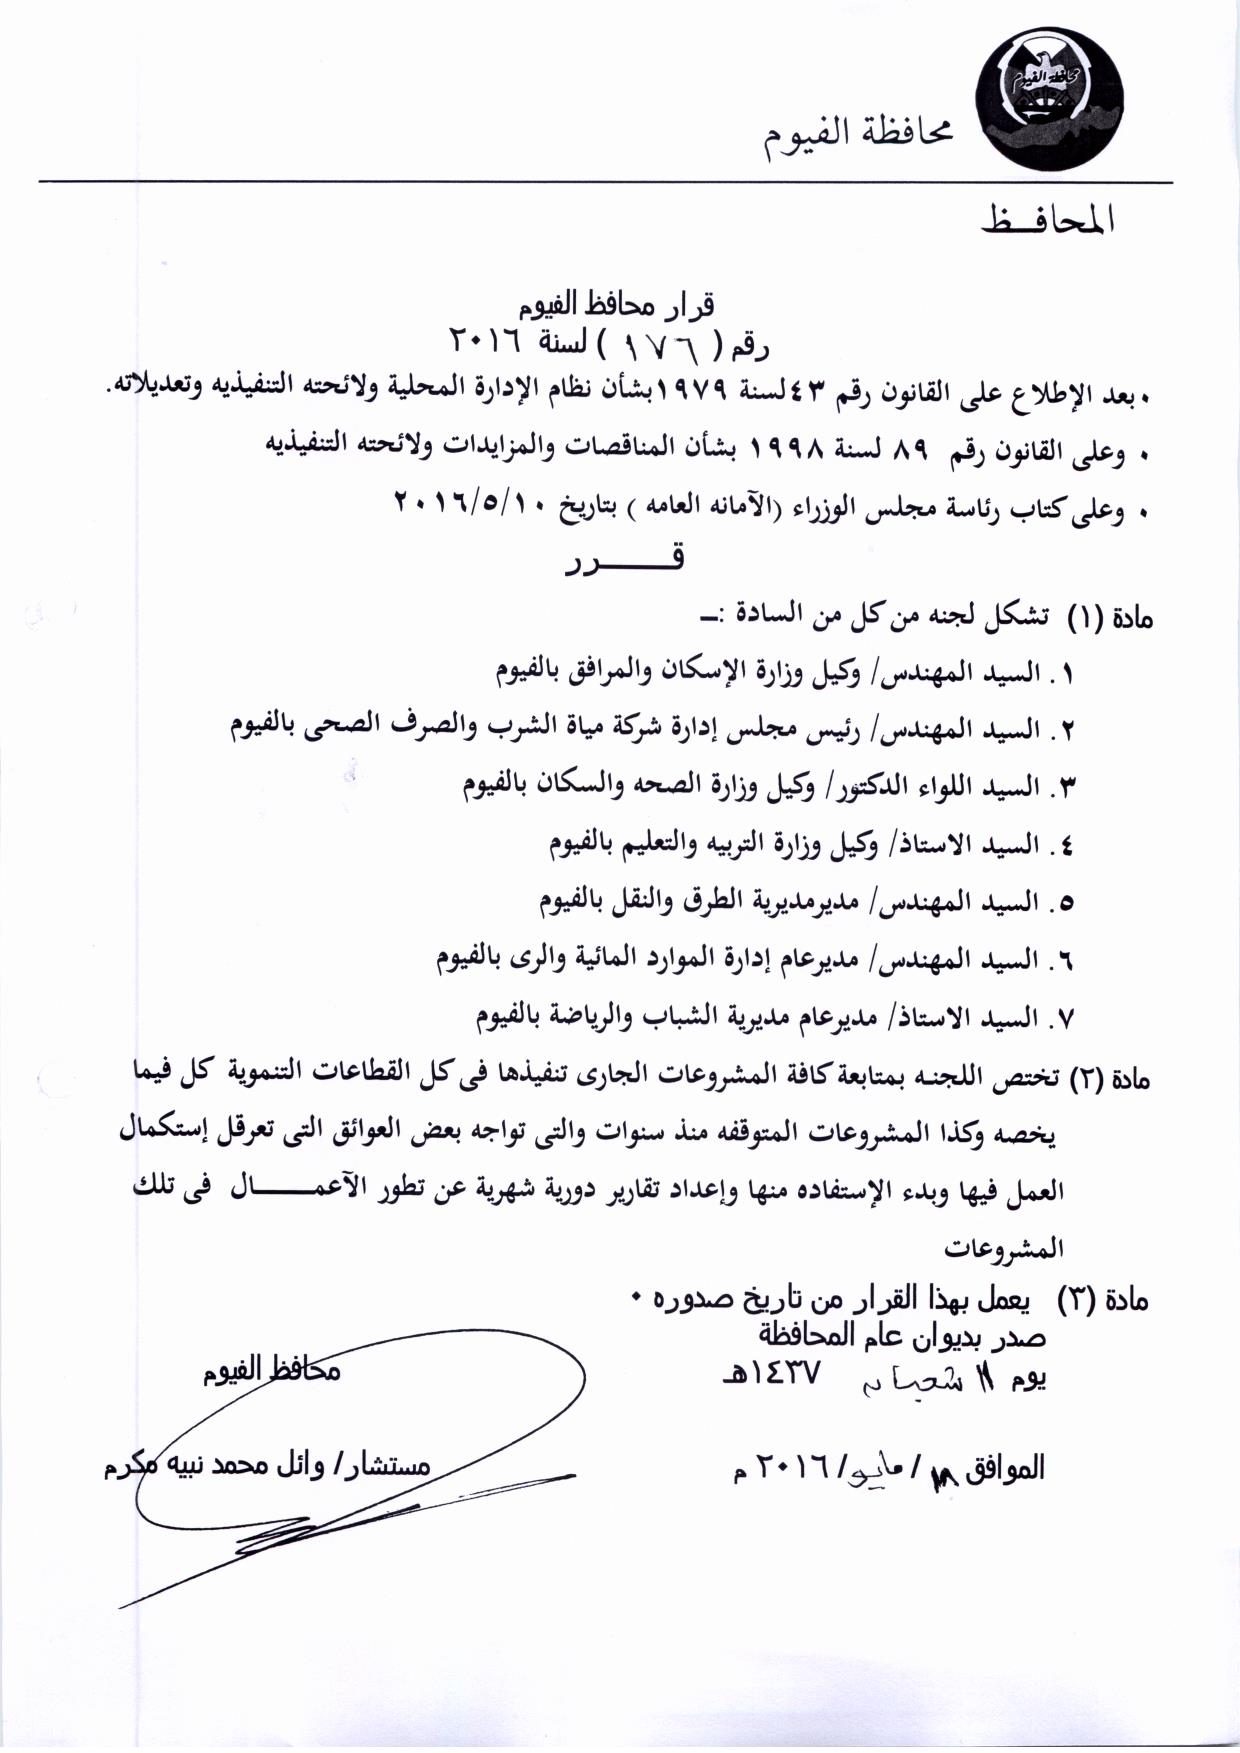 محافظة الفيوم
محافظة الفيوم
المحافـــظ
قرار محافظ الفيوم
رقم ( ١٧٦ ) لسنة ٢٠١٦
• بعد الإطلاع على القانون رقم ٤٣ لسنة ١٩٧٩ بشأن نظام الإدارة المحلية ولائحته التنفيذيه وتعديلاته.
• وعلى القانون رقم ٨٩ لسنة ١٩٩٨ بشأن المناقصات والمزايدات ولائحته التنفيذيه
• وعلى كتاب رئاسة مجلس الوزراء (الآمانه العامه ) بتاريخ ٢٠١٦/٥/١٠
قـــــــرر
مادة (١) تشكل لجنه من كل من السادة :ـ
١. السيد المهندس/ وكيل وزارة الإسكان والمرافق بالفيوم
٢. السيد المهندس/ رئيس مجلس إدارة شركة مياة الشرب والصرف الصحى بالفيوم
٣. السيد اللواء الدكتور/ وكيل وزارة الصحه والسكان بالفيوم
٤. السيد الاستاذ/ وكيل وزارة التربيه والتعليم بالفيوم
٥. السيد المهندس/ مديرمديرية الطرق والنقل بالفيوم
٦. السيد المهندس/ مديرعام إدارة الموارد المائية والرى بالفيوم
٧. السيد الاستاذ/ مديرعام مديرية الشباب والرياضة بالفيوم
مادة (٢) تختص اللجنه بمتابعة كافة المشروعات الجارى تنفيذها فى كل القطاعات التنموية كل فيما
يخصه وكذا المشروعات المتوقفه منذ سنوات والتى تواجه بعض العوائق التى تعرقل إستكمال
العمل فيها وبدء الإستفاده منها وإعداد تقارير دورية شهرية عن تطور الآعمـــــــال فى تلك
المشروعات
مادة (٣) يعمل بهذا القرار من تاريخ صدوره •
صدر بديوان عام المحافظة
يوم ١١ شعبان ١٤٣٧هـ
الموافق ١٨ / مايو/ ٢٠١٦ م
محافظ الفيوم
مستشار/ وائل محمد نبيه مكرم